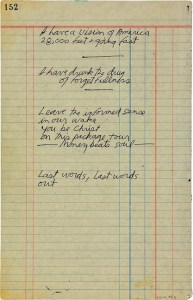 152
I have a vision of America
28,000 feet & going fast
I have drunk the drug
of forgetfullness
Leave the informed sense
in our wake
You be Christ
On this package tour
— Money beats soul —
Last words, last words
out